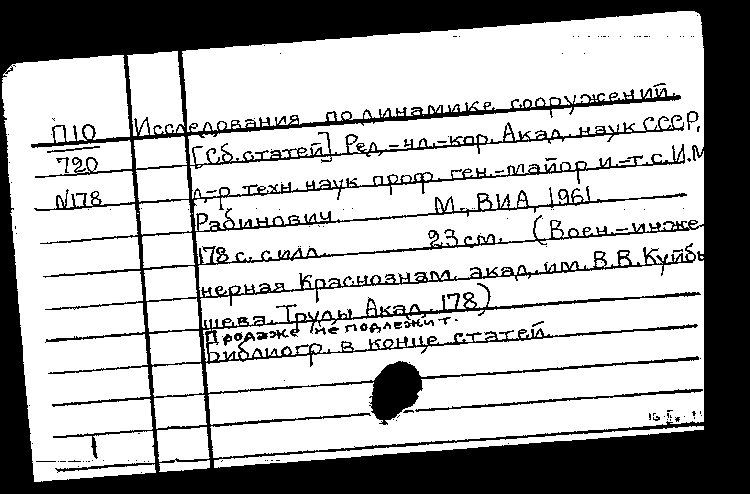 П10 Исследования по динамике сооружений.
720 [Сб. статей]. Ред.-чл.-кор. Акад. наук СССР,
N178 д-р техн. наук проф. ген.-майор и.-т. с. И.М
Рабинович. М., ВИА, 1961.
178 с. с илл. 23 см. (Воен.-инже-
нерная Краснознам. акад. им. В.В. Куйбы
шева. Труды Акад. 178)
Продаже не подлежит.
Библиогр. в конце статей.
1